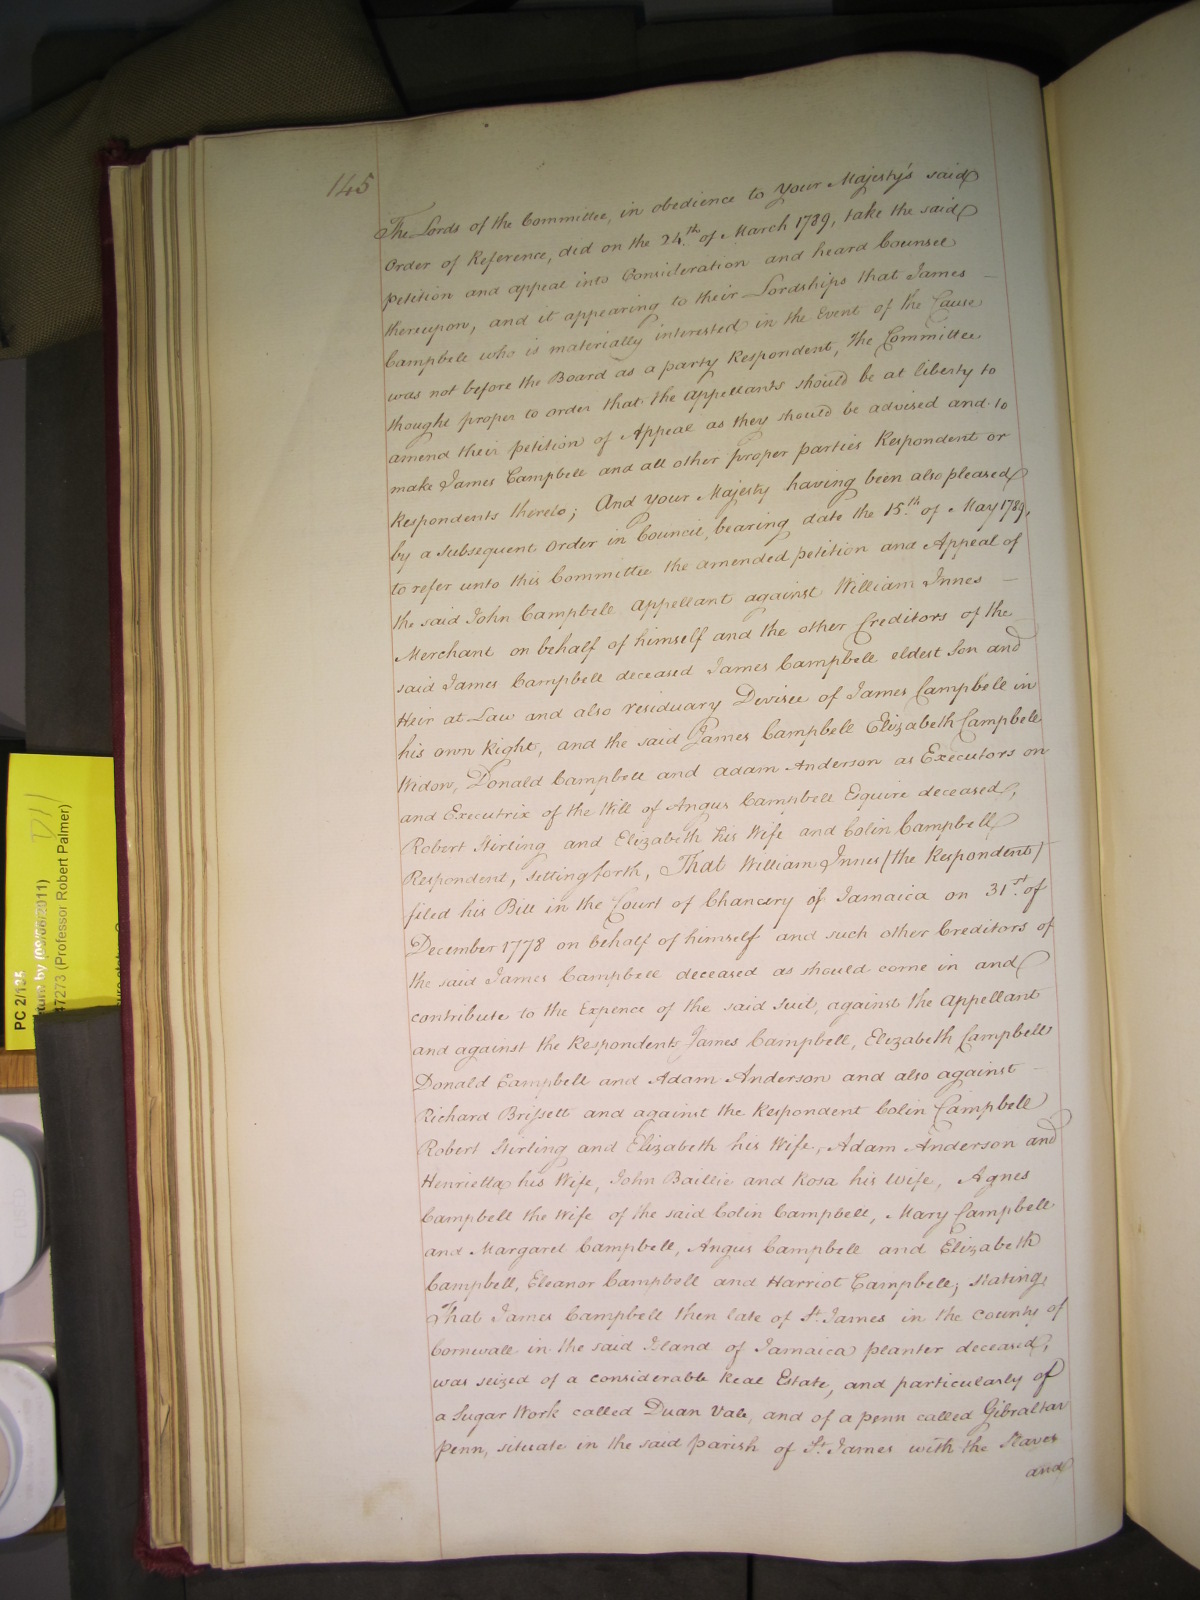 145
The Lords of the Committee, in obedience to Your Majesty's said
Order of Reference, did on the 24th of March 1789, take the said
petition and appeal into Consideration and heard Counsel
thereupon, and it appearing to their Lordships that James
Campbell who is materially interested in the Event of the Cause
was not before the Board as a party Respondent, the Committee
thought proper to order that the appellants should be at liberty to
amend their petition of Appeal as they should be advised and to
make James Campbell and all other proper parties Respondent or
Respondents thereto; And Your Majesty having been also pleased
by a subsequent Order in Council, bearing date the 15th of May 1789,
to refer unto this Committee the amended petition and Appeal of
the said John Campbell appellant against William Innes
Merchant on behalf of himself and the other Creditors of the
said James Campbell deceased James Campbell eldest Son and
Heir at Law and also residuary Devisee of James Campbell in
his own Right, and the said James Campbell Elizabeth Campbell
Widow, Donald Campbell and Adam Anderson as Executors on
and Executrix of the Will of Angus Campbell Esquire deceased,
Robert Stirling and Elizabeth his Wife and Colin Campbell
Respondent, setting forth, That William Innes (the Respondent)
filed his Bill in the Court of Chancery of Jamaica on 31st of
December 1778 on behalf of himself and such other Creditors of
the said James Campbell deceased as should come in and
contribute to the Expence of the said Suit, against the appellant
and against the Respondents James Campbell, Elizabeth Campbell
Donald Campbell and Adam Anderson and also against
Richard Brissett and against the Respondent Colin Campbell
Robert Stirling and Elizabeth his Wife, Adam Anderson and
Henrietta his Wife, John Baillie and Rosa his Wife, Agnes
Campbell the Wife of the said Colin Campbell, Mary Campbell
and Margaret Campbell, Angus Campbell and Elizabeth
Campbell, Eleanor Campbell and Harriot Campbell; stating,
That James Campbell then late of St. James in the County of
Cornwall in the said Island of Jamaica planter deceased,
was seized of a considerable Real Estate, and particularly of
a Sugar Work called Duan Vale, and of a penn called Gibraltar
penn, situate in the said parish of St. James with the Slaves
and
PC 2/135
by (09/06/2011)
47273 (Professor Robert Palmer)